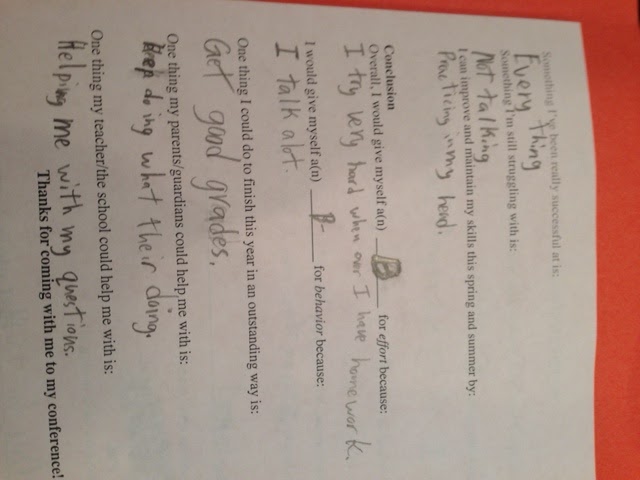 Something I've been really successful at is:
Every thing
Something I'm still struggling with is:
Not talking
I can improve and maintain my skills this spring and summer by:
Practicing in my head.
Conclusion
Overall, I would give myself a(n) B for effort because:
I try very hard when ever I have homework.
I would give myself a(n) B- for behavior because:
I talk alot.
One thing I could do to finish this year in an outstanding way is:
Get good grades.
One thing my parents/guardians could help me with is:
Keep doing what their doing.
One thing my teacher/the school could help me with is:
Helping me with my questions.
Thanks for coming with me to my conference!